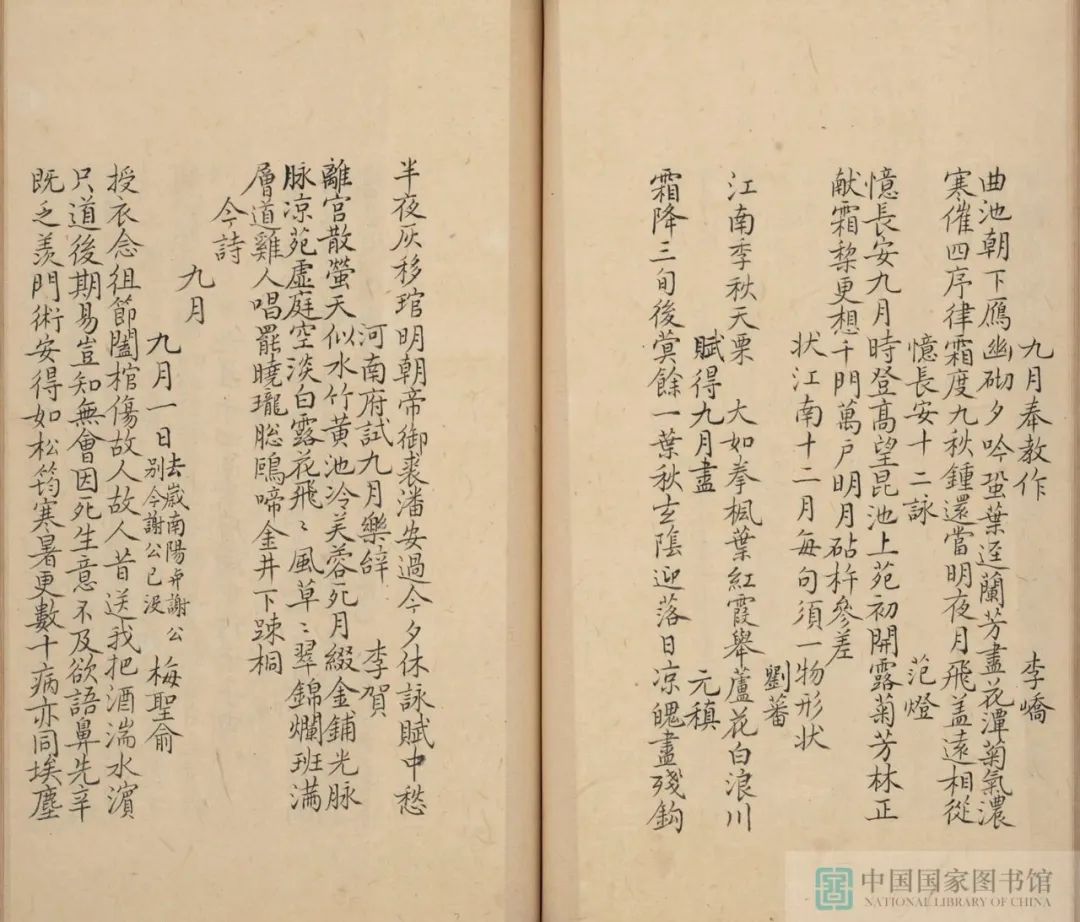 九月奉教作 李嶠
曲池朝下鴈幽砌夕吟蛩葉逕蘭芳盡花潭菊氣濃
寒催四序律霜度九秋鍾還當明夜月飛盖遠相從
憶長安十二詠 范燈
憶長安九月時登高望昆池上苑初開露菊芳林正
献霜棃更想千門萬戶明月砧杵參差
状江南十二月每句須一物形状
劉蕃
江南季秋天栗 大如拳楓葉紅霞舉蘆花白浪川
賦得九月盡 元稹
霜降三旬後蓂餘一葉秋玄陰迎落日凉魄盡殘鈎
半夜灰移琯明朝帝御裘潘安過今夕休詠賦中愁
河南府試九月樂辞 李賀
離宮散螢天似水竹黄池冷芙蓉死月綴金鋪光脉
脉凉苑虚庭空淡白露花飛〻風草〻翠錦爛班满
層道雞人唱罷曉瓏聡鴎啼金井下踈桐
今詩
九月
九月一日去歲南陽與謝公别今謝公已没 梅聖俞
授衣念徂節闔棺傷故人故人昔送我把酒湍水濱
只道後期易豈知無會因死生意不及欲語鼻先辛
既乏羡門術安得如松筠寒暑更數十病亦同埃塵
中国国家图书馆
NATIONAL LIBRARY OF CHINA